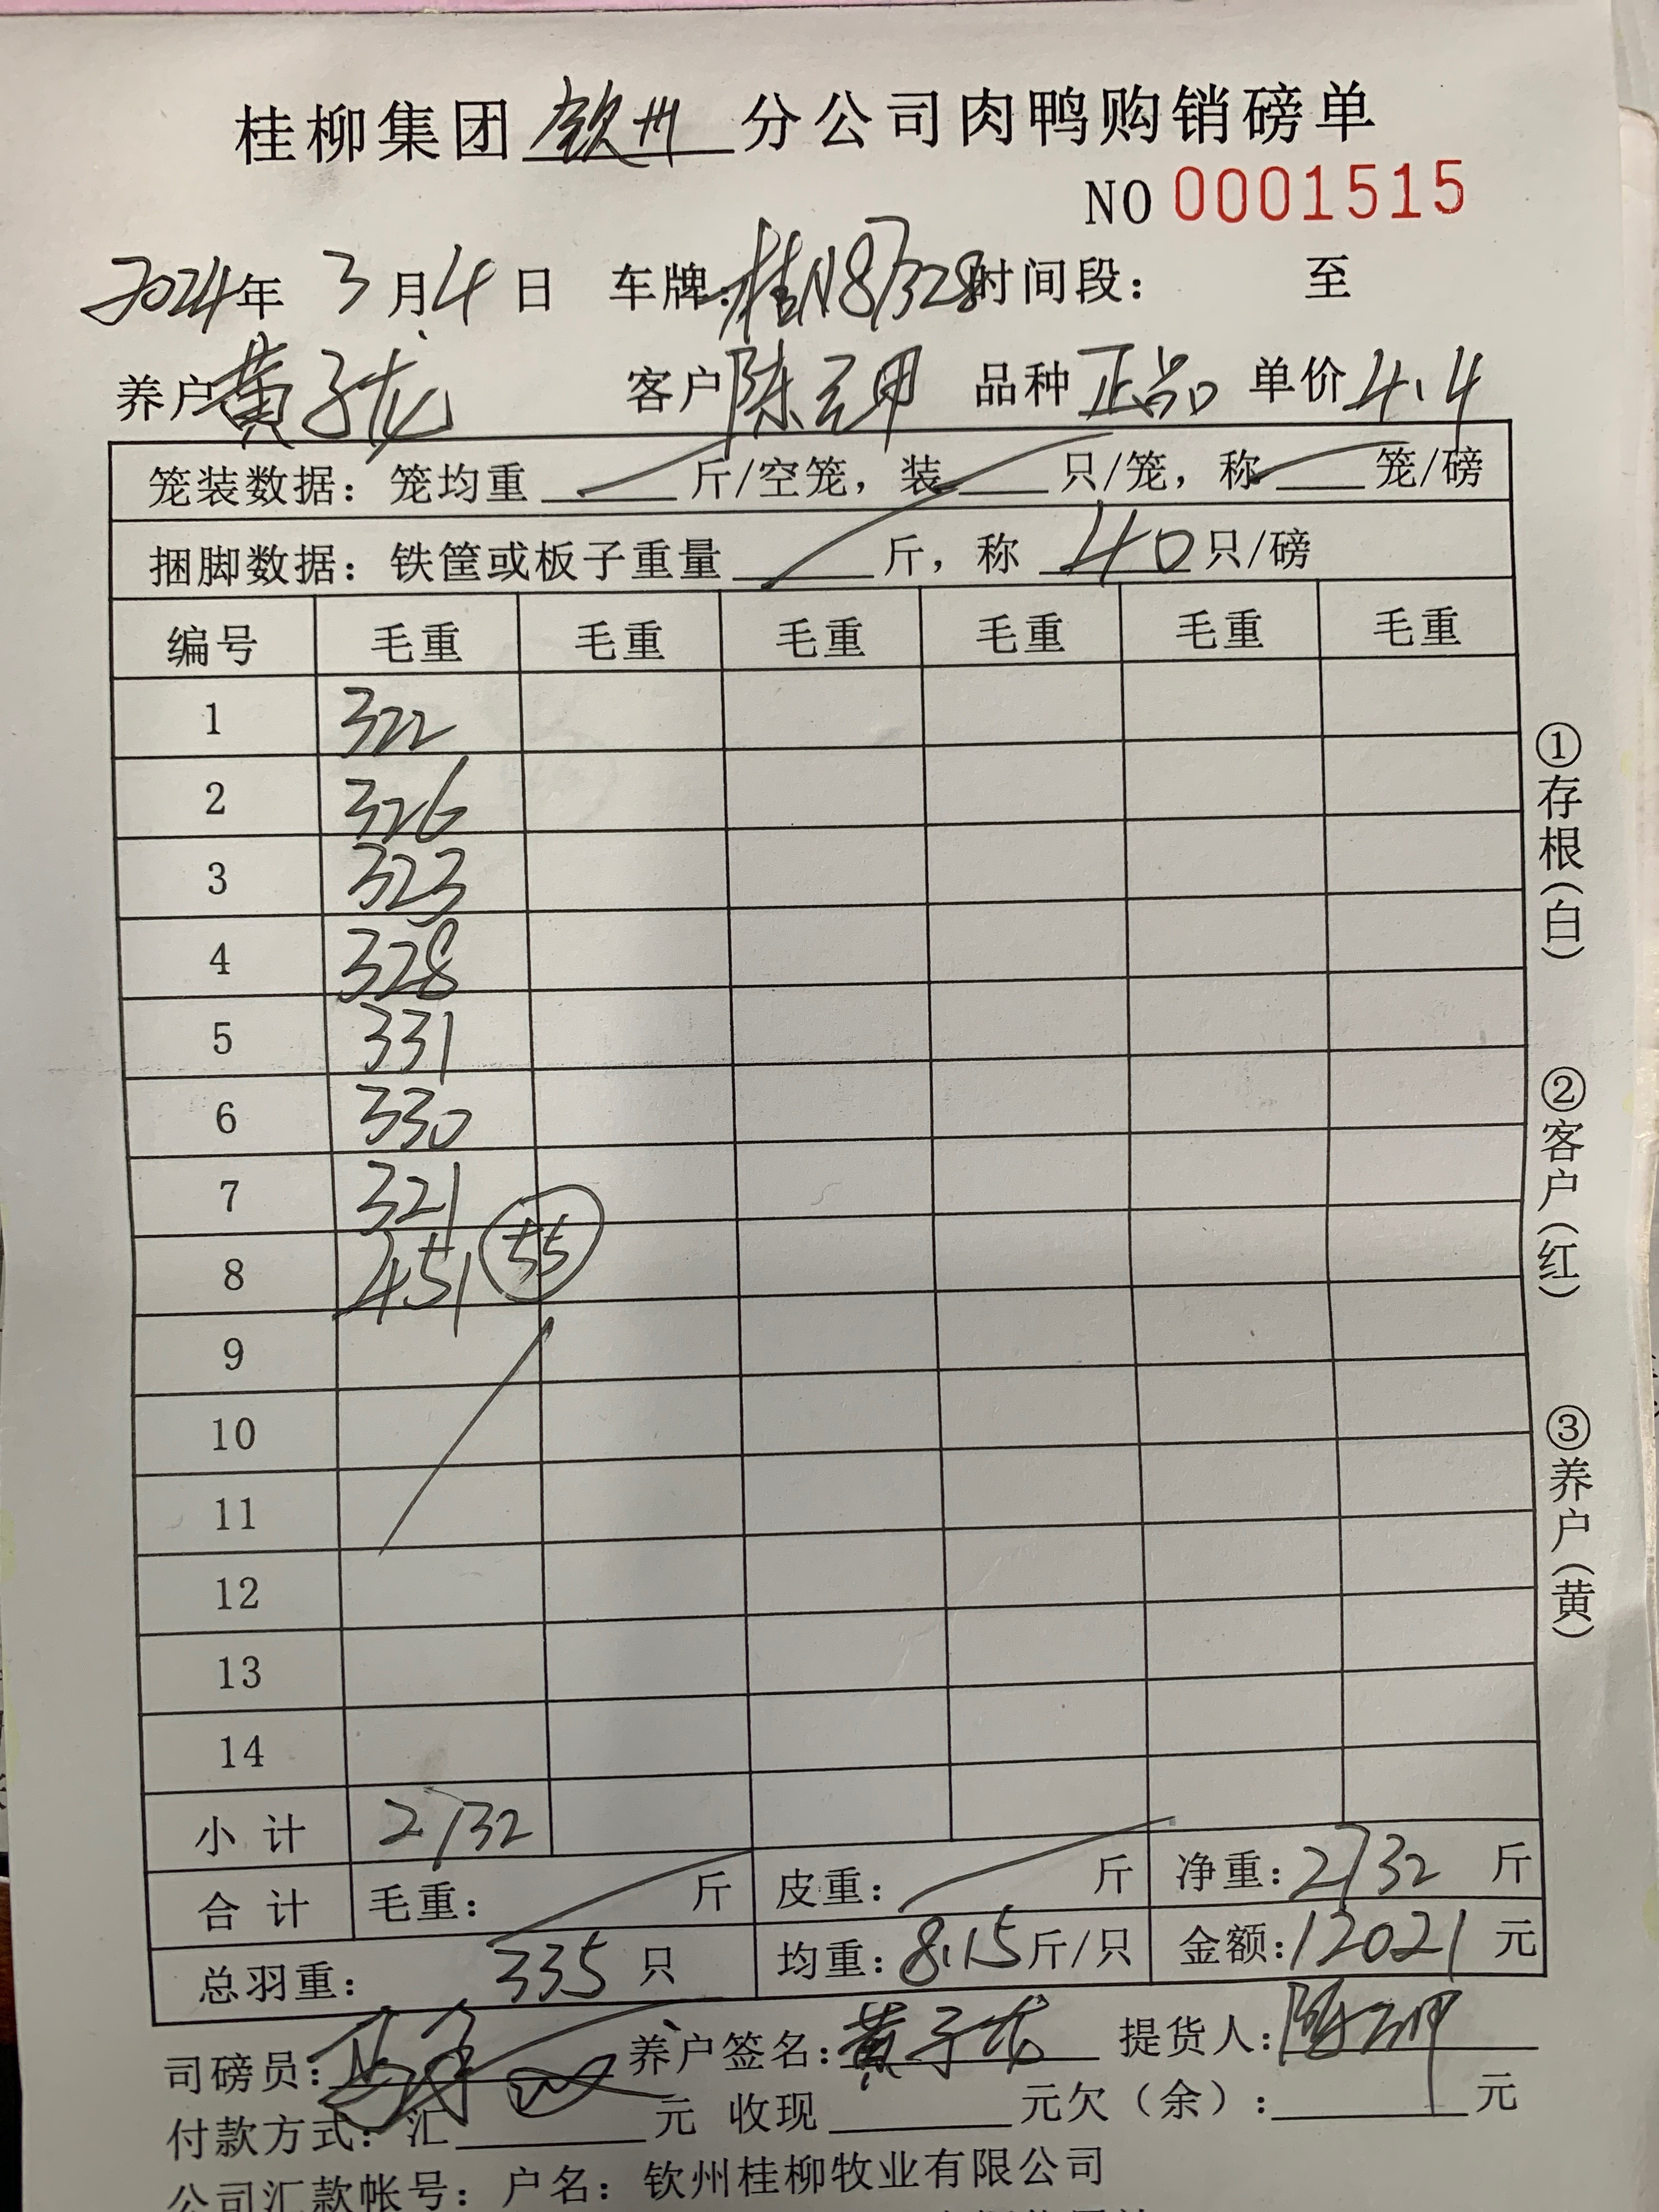 桂柳集团钦州分公司肉鸭购销磅单
NO 0001515
2024年3月4日 车牌:桂N87328时间段: 至
养户黄子龙 客户陈云甲 品种正品 单价4.4
笼装数据:笼均重 斤/空笼,装 只/笼,称 笼/磅
捆脚数据:铁筐或板子重量 斤,称 40只/磅
编号 毛重 毛重 毛重 毛重 毛重 毛重
1 322
2 326
3 323
4 328
5 331
6 330
7 321
8 451 55
9
10
11
12
13
14
小计 2732
合计 毛重: 斤 皮重: 斤 净重:2732 斤
总羽重: 335只 均重:8.15斤/只 金额:12021元
司磅员: 养户签名:黄子龙 提货人:
付款方式:汇 元 收现 元欠(余): 元
公司汇款帐号:户名:钦州桂柳牧业有限公司
①存根(白)
②客户(红)
③养户(黄)